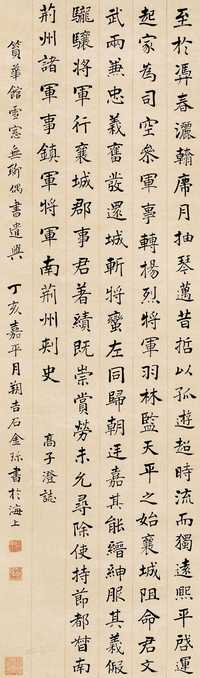 至於憑春灑翰席月抽琴邁昔哲以孤遊超時流而獨遠熙平啓運
起家為司空參軍事轉揚烈將軍羽林監天平之始襄城阻命君文
武兩兼忠義奮發還城斬將蠻左同歸朝廷嘉其能縉紳服其義假
驪驤將軍行襄城郡事君著績既崇賞勞未允尋除使持節都督南
荊州諸軍事鎮軍將軍南荊州刺史 高子澄誌
篔華館雪窓無聊偶書遣興 丁亥嘉平月朔吉石金琛書於海上